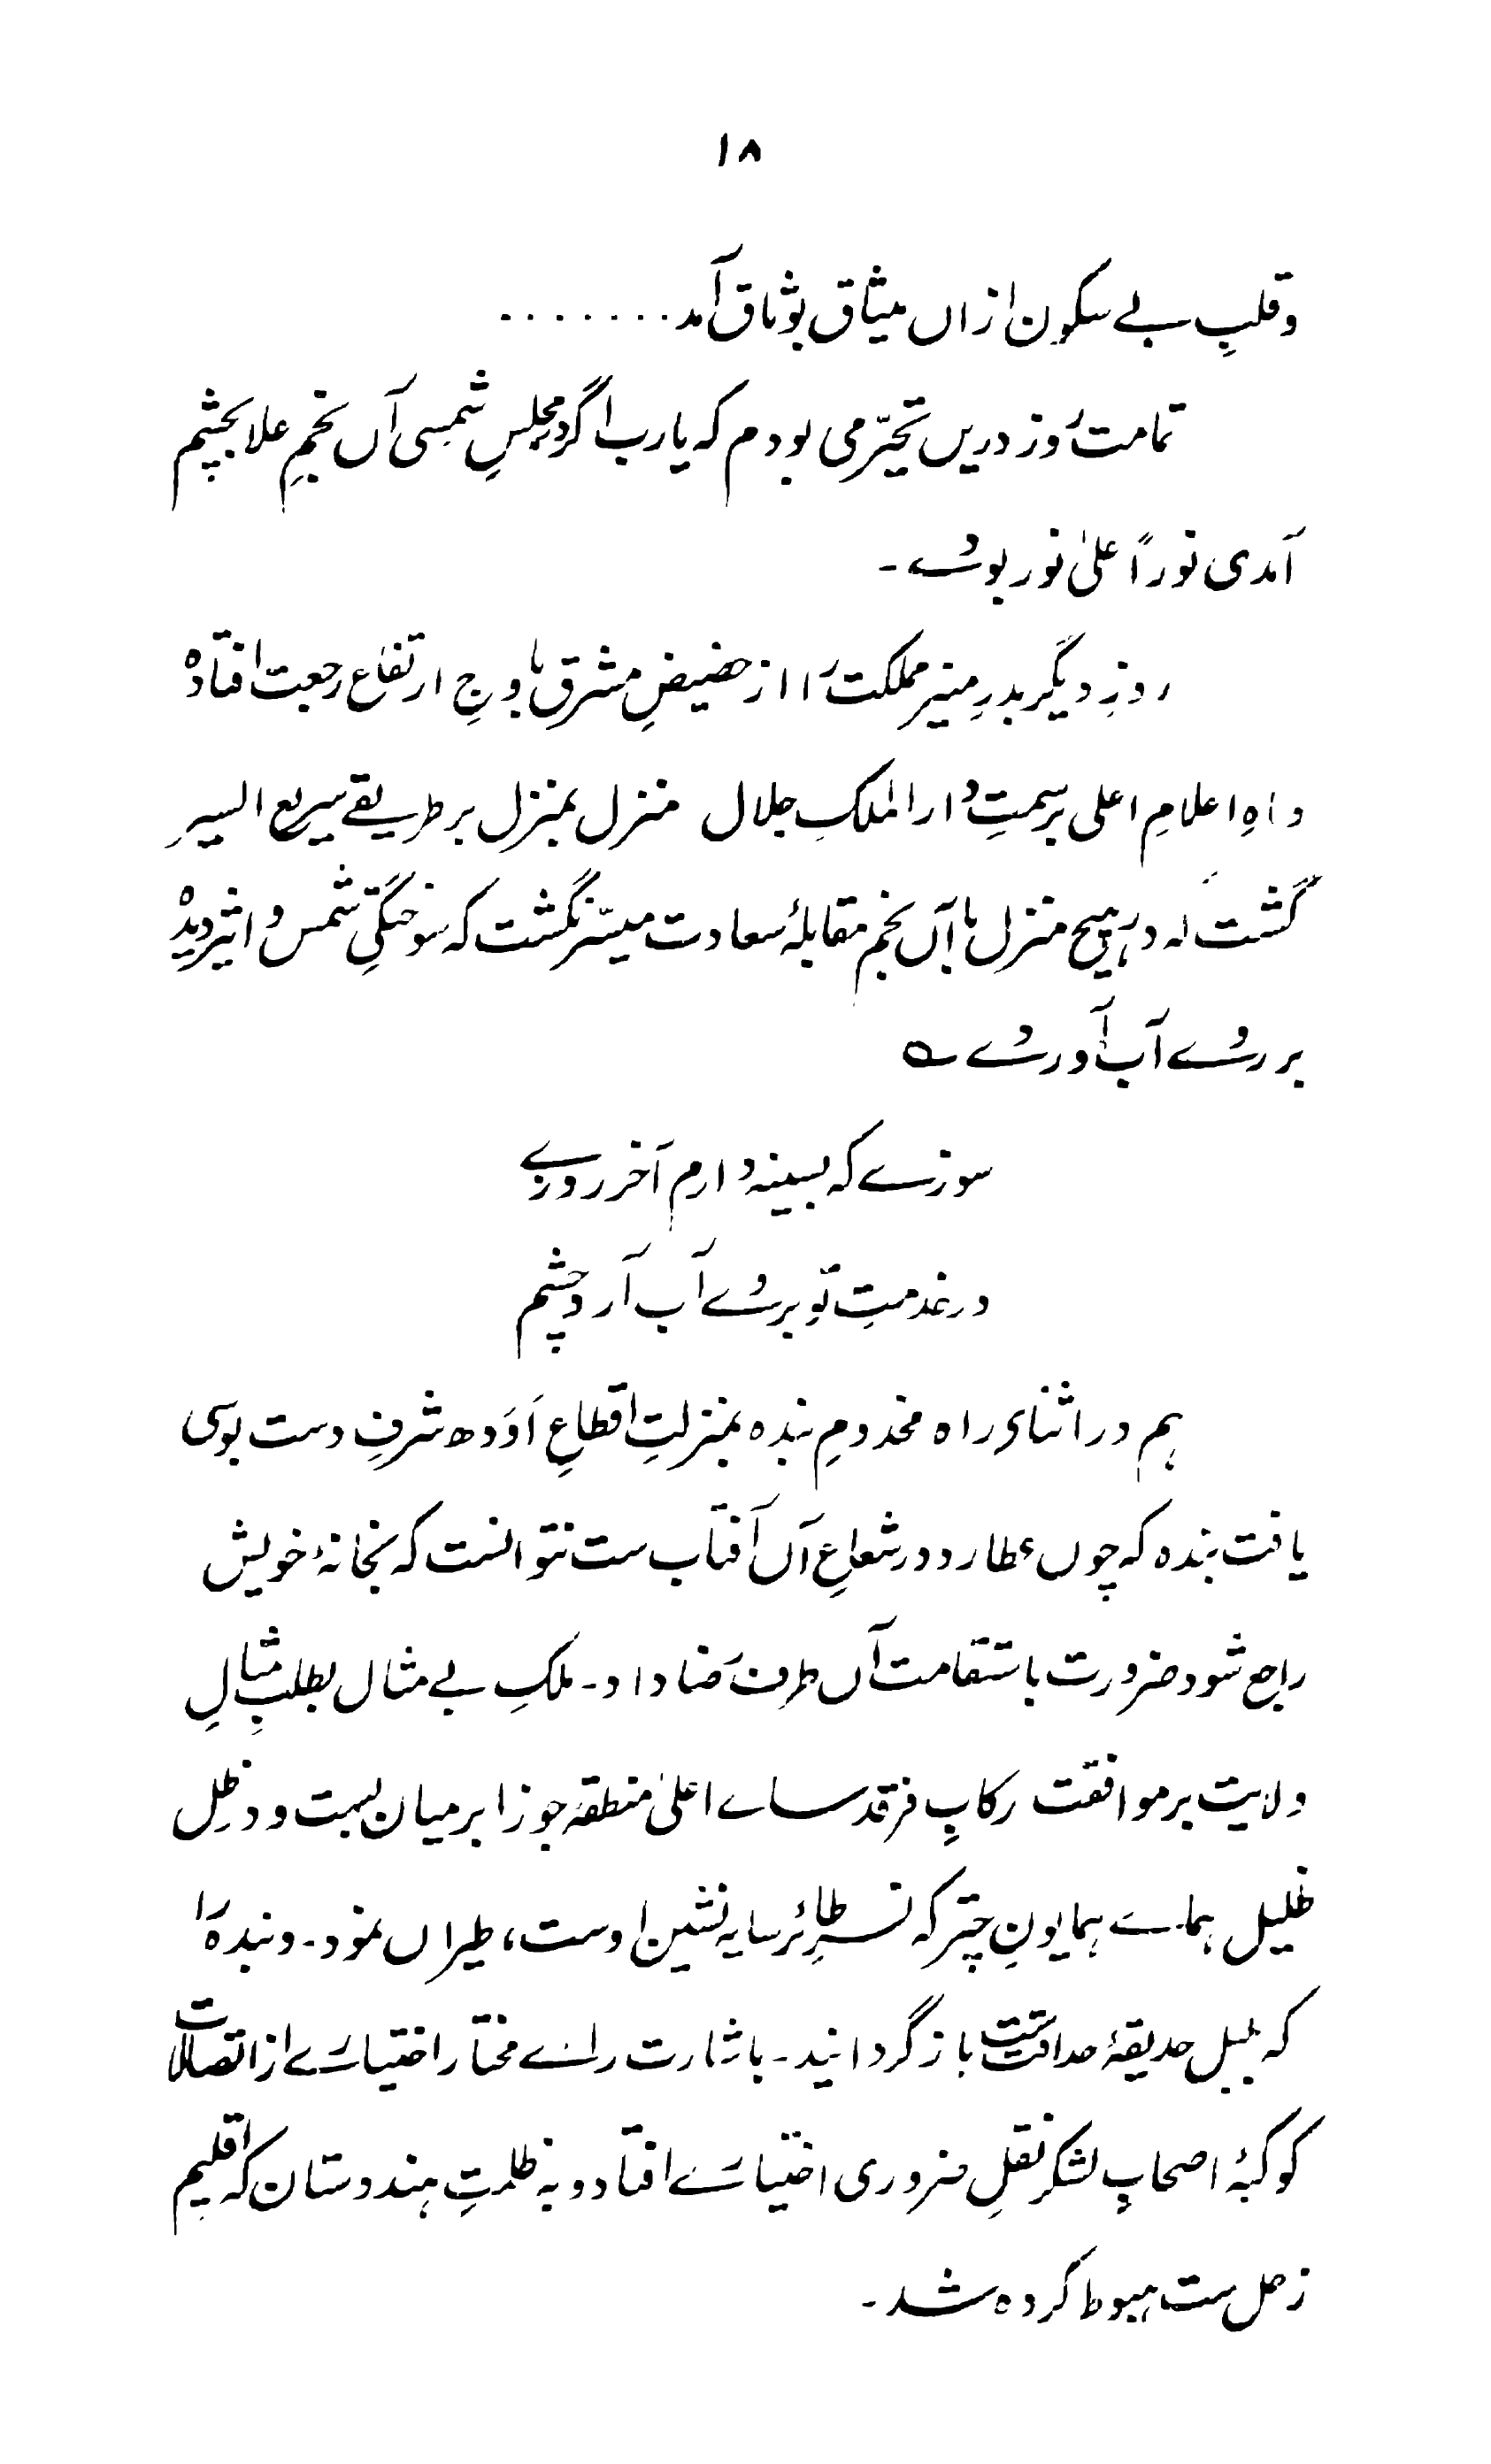 ۱۸
و قلبِ بے سکون ازاں میثاق بوثاق آمد........
تمامت روز دریں تحیّر می بودم کہ یارب اگر در مجلسِ شمسی آں نجمِ علا بچشم
آمدی نوراً علیٰ نور بودے۔
روزِ دیگر بدرِ منیر مملکت را از حضیضِ مشرق باوجِ ارتفاع رجعت افتاد
و ماہِ اعلامِ اعلی برسمتِ دار الملکِ جلال منزل بمنزل بر طریقے سریع السیر
گشت کہ در ہیچ منزل با آں نجم مقابلۂ سعادت میسّر نگشت کہ سوختگیِ شمس و اثر دیدہ
بر روے آب آوردے ؎
سوزے کہ بسینہ دارم آخر روزے
در خدمتِ تو بروے آب آرد چشم
ہم در اثنای راہ مخدومِ بندہ بمنزلتِ اقطاعِ اَوَدھ شرفِ دست بوسی
یافت بندہ کہ چوں عطارد در شعاعِ آں آفتاب ست نتوانست کہ بخانۂ خویش
راجع شود ضرورت باستقامت آں طرف رضا داد۔ ملکِ بے مثال بطلبِ مثالِ
ولایت بر موافقت رکابِ فرقد ساے اعلیٰ منطقۂ جوزا بر میان بست و در ظلِ
ظلیل ہماے ہمایونِ چتر کہ نسرِ طائر سایہ نشین اوست، طیراں نمود۔ و بندہ را
کہ بلبل حدیقۂ صداقت ست باز گردانید۔ باشارت راے مختار اختیارے از اتصالات
کوکبۂ اصحابِ لشکر نقلِ ضروری اختیارے افتاد و بہ ظلمتِ ہندوستان کہ اقلیم
زحل ست ہبوط کردہ شد۔